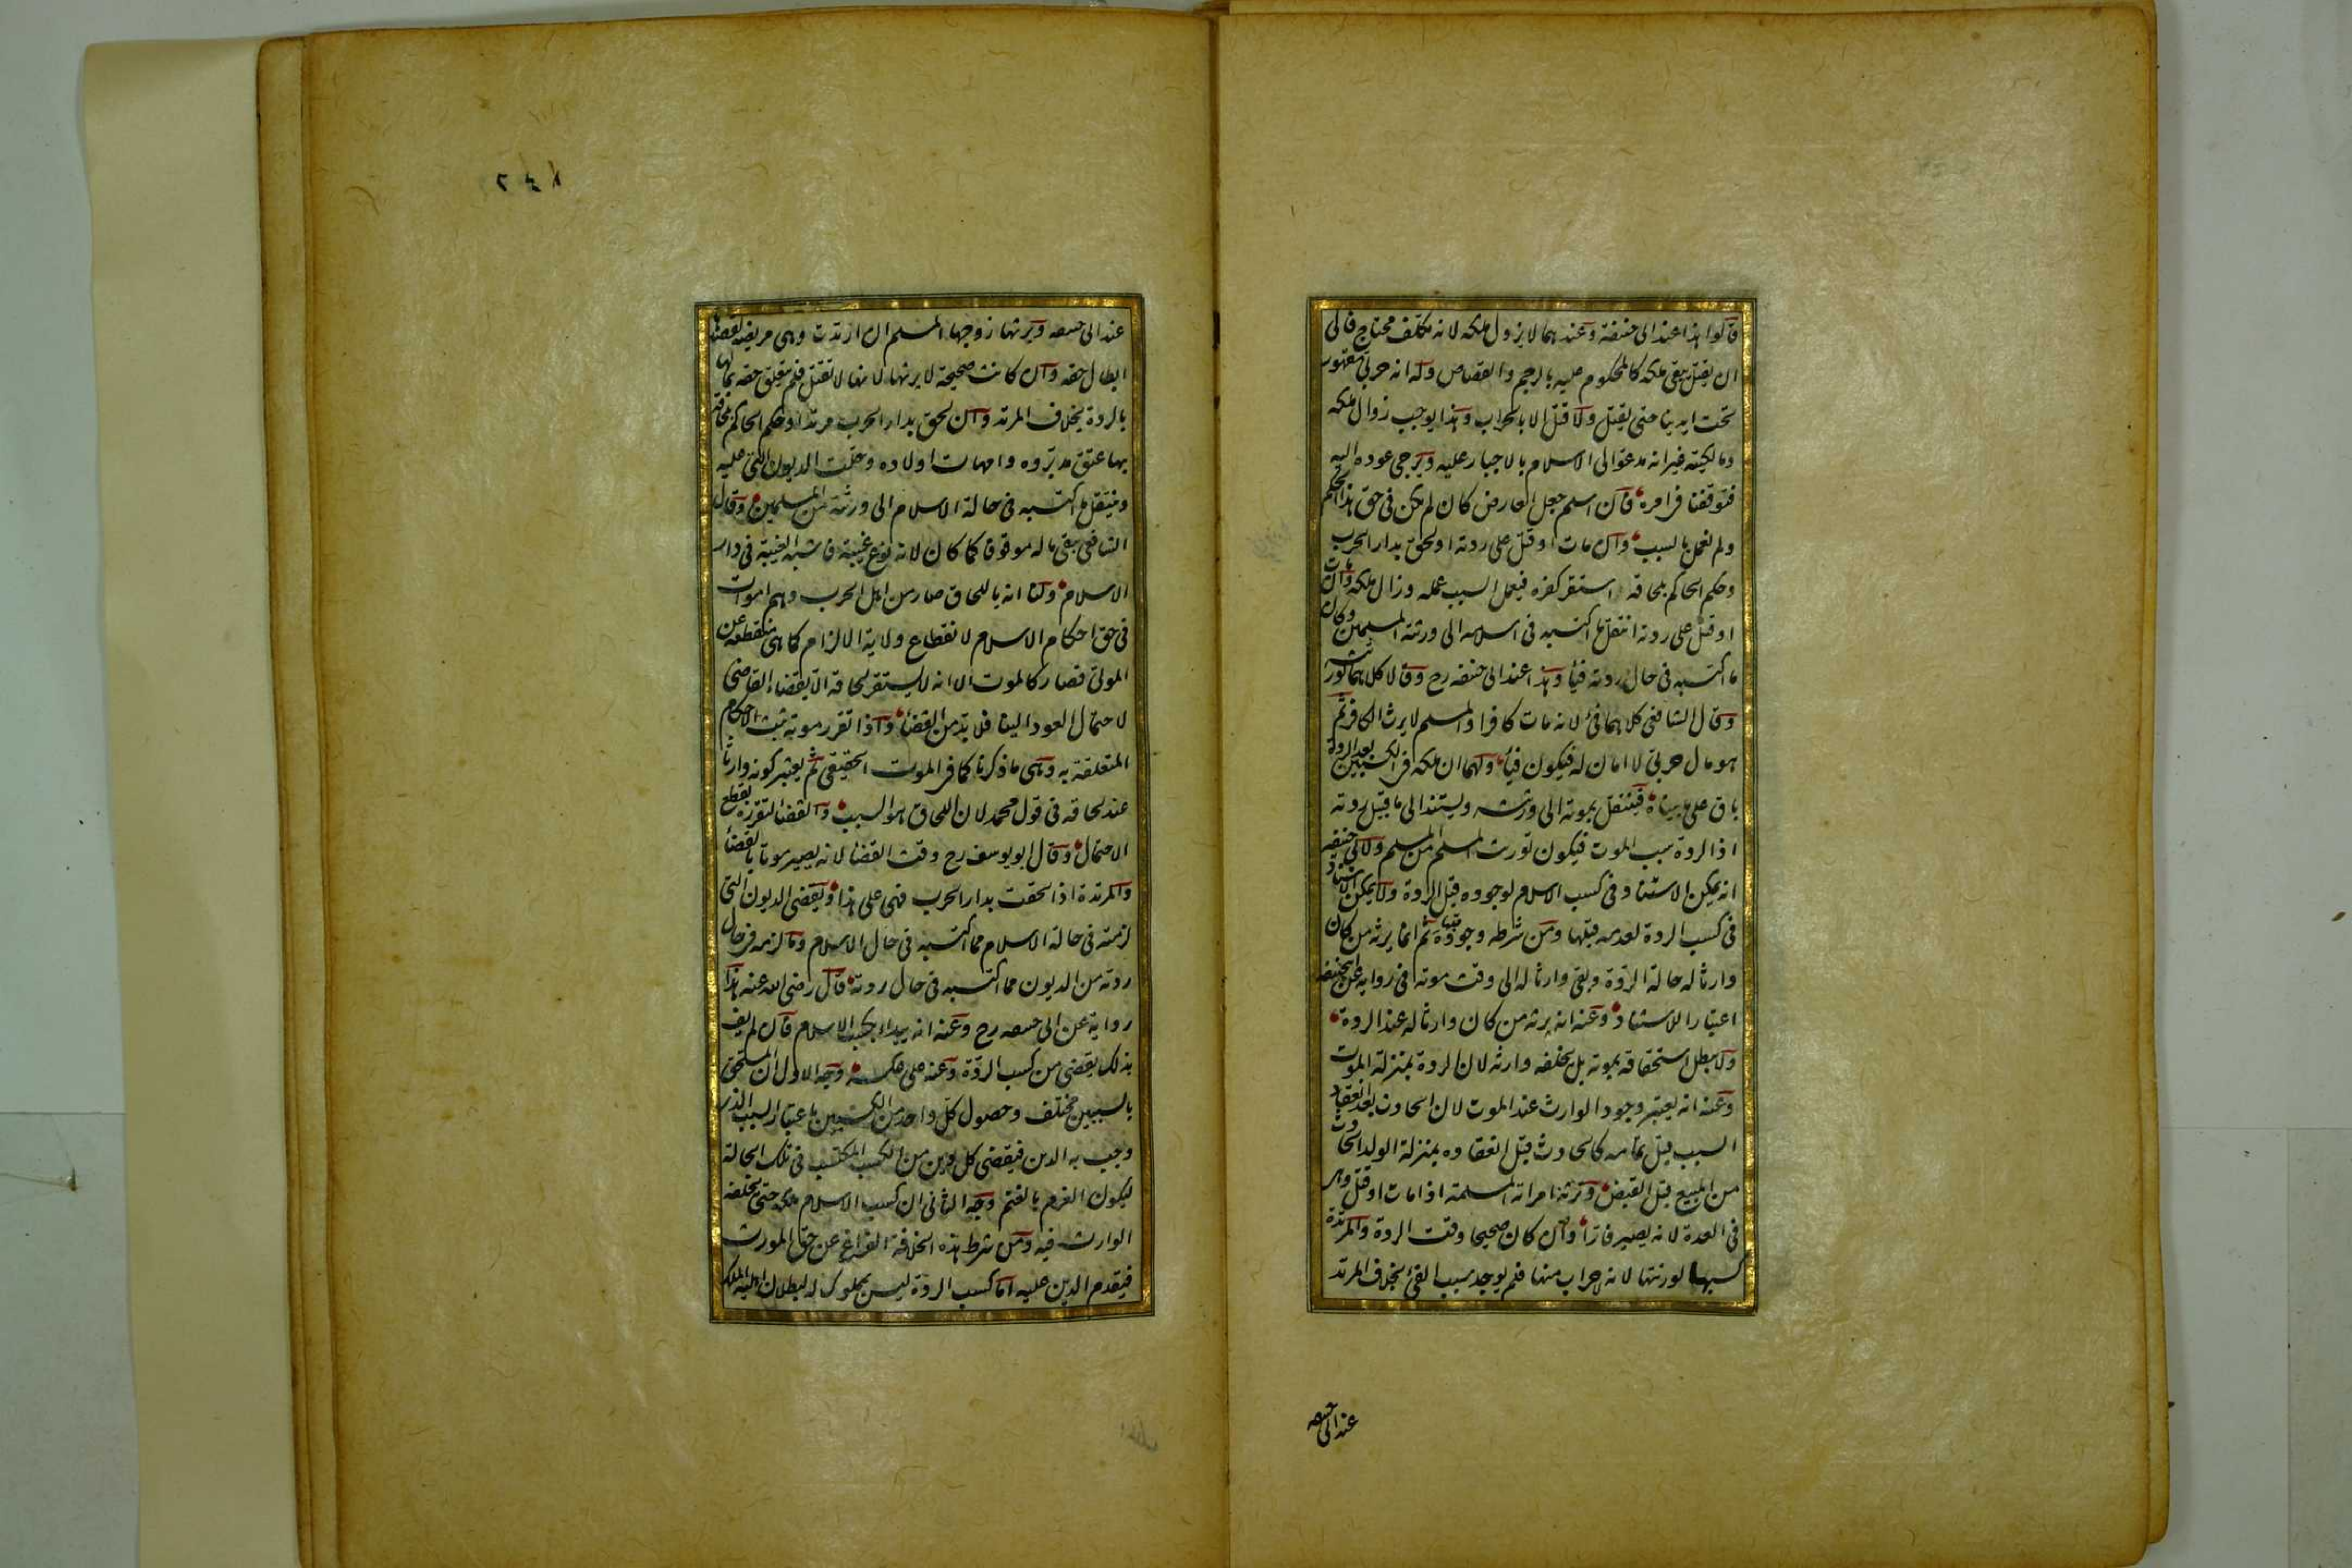 قالوا هذا عند ابى حنيفة وعندهما لا يزول ملكه لانه مكلف محتاج فالى
ان يقتل يبقى ملكه كالمحكوم عليه بالرجم والقصاص وله انه حربى مقهور
تحت ايدينا حتى يقتل ولا قتل الا بالحراب وهذا يوجب زوال ملكه
ومالكيته غير انه مدعو الى الاسلام بالاجبار عليه ويرجى عوده اليه
فتوقفنا فى امره فان اسلم جعل العارض كان لم يكن فى حق هذا الحكم
ولم نعمل بالسبب وان مات او قتل على ردته او لحق بدار الحرب
وحكم الحاكم بلحاقه استقر كفره فيعمل السبب عمله وزال ملكه وان مات
او قتل على ردته انتقل ما اكتسبه فى اسلامه الى ورثته المسلمين وكان
ما اكتسبه فى حال ردته فيأ وهذا عند ابى حنيفه رح وقالا كلاهما لورثته
وقال الشافعى كلاهما فئ لانه مات كافرا والمسلم لا يرث الكافر ثم
هو مال حربى لا امان له فيكون فيأ ولهما ان ملكه فى الكسبين بعد الردة
باق على ما بيناه فينتقل بموته الى ورثته ويستند الى ما قبيل ردته
اذ الردة سبب الموت فيكون توريث المسلم من المسلم ولابى حنيفه
انه يمكن الاستناد فى كسب الاسلام لوجوده قبل الردة ولا يمكن الاستناد
فى كسب الردة لعدمه قبلها ومن شرطه وجوده قبلها ثم انما يرثه من كان
وارثا له حالة الردة وبقى وارثا له الى وقت موته فى رواية عن ابى حنيفه
اعتبارا للاستناد وعنه انه يرثه من كان وارثا له عند الردة
ولا يبطل استحقاقه بموته بل يخلفه وارثه لان الردة بمنزلة الموت
وعنه انه يعتبر وجود الوارث عند الموت لان الحادث بعد انعقاد
السبب قبل تمامه كالحادث قبل انعقاده بمنزلة الولد الحادث
من المبيع قبل القبض وترثه امراته المسلمة اذا مات او قتل وهى
فى العدة لانه يصير فارا وان كان صحيحا وقت الردة والمرتدة
كسبها لورثتها لانه لا حراب منها فلم يوجد سبب الفئ بخلاف المرتد
عند ابى حسعه
٢٤٨
عند ابى حسعه ويرثها زوجها المسلم ان ارتدت وهى مريضة لقصدها
ابطال حقه وان كانت صحيحة لا يرثها لانها لا تقتل فلم يتعلق حقه بمالها
بالردة بخلاف المرتد وان لحق بدار الحرب مرتدا وحكم الحاكم بلحاقه
بها عتق مدبروه وامهات اولاده وحلت الديون التى عليه
وينتقل ما اكتسبه فى حالة الاسلام الى ورثته من المسلمين وقال
الشافعى يبقى ماله موقوفا كما كان لانه نوع غيبة فاشبه الغيبة فى دار
الاسلام ولنا انه باللحاق صار من اهل الحرب وهم اموات
فى حق احكام الاسلام لانقطاع ولاية الالزام كما هى منقطعة عن
الموتى فصار كالموت الا انه لا يستقر لحاقه الا بقضاء القاضى
لاحتمال العود الينا فلا بد من القضا واذا تقرر موته تثبت الاحكام
المتعلقة به وهى ما ذكرنا كما فى الموت الحقيقى ثم يعتبر كونه وارثا
عند لحاقه فى قول محمد لان اللحاق هو السبب والقضا لتقرره بقطع
الاحتمال وقال ابو يوسف رح وقت القضا لانه يصير موتا بالقضأ
والمرتدة اذا لحقت بدار الحرب فهى على هذا ويقضى الديون التى
لزمته فى حالة الاسلام مما اكتسبه فى حال الاسلام وما لزمه فى حال
ردته من الديون مما اكتسبه فى حال ردته قال رضى الله عنه هذا
رواية عن ابى حسعه رح وعنه انه يبداء بكسب الاسلام فان لم يف
بذلك يقضى من كسب الردة وعنه على عكسه وجه الاول ان المستحق
بالسببين مختلف وحصول كل واحد من الكسبين باعتبار السبب الذى
وجب به الدين فيقضى كل دين من الكسب المكتسب فى تلك الحالة
ليكون الغرم بالغنم وجه الثانى ان كسب الاسلام ملكه حتى يخلفه
الوارث فيه ومن شرط هذه الخلافة الفراغ عن حق المورث
فيقدم الدين عليه اما كسب الردة ليس بمملوك له لبطلان اهلية الملك